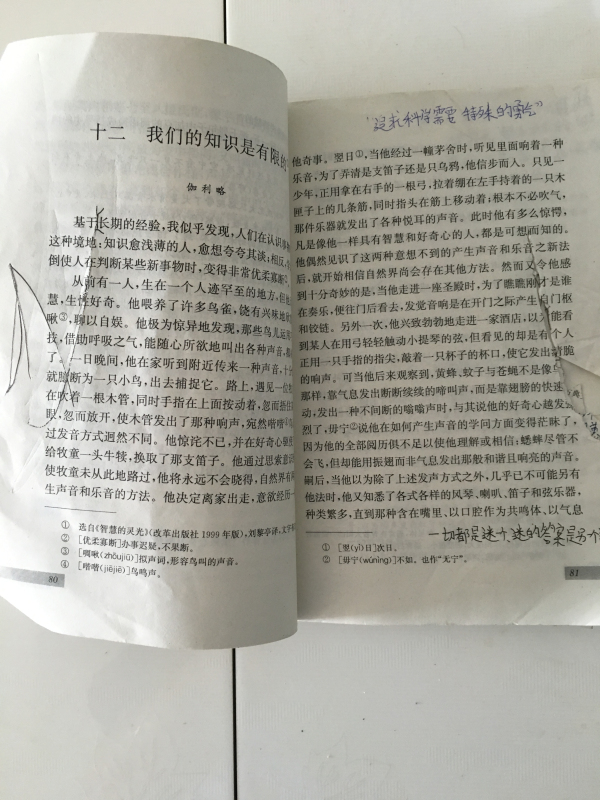 十二 我们的知识是有限的
伽利略
基于长期的经验,我似乎发现,人们在认识
这种境地:知识愈浅薄的人,愈想夸夸其谈;相反,
倒使人在判断某些新事物时,变得非常优柔寡断
从前有一人,生在一个人迹罕至的地方,但
慧,生性好奇。他喂养了许多鸟雀,饶有兴味地
啾③,聊以自娱。他极为惊异地发现,那些鸟儿运
技,借助呼吸之气,能随心所欲地叫出各种声音,
了。一日晚间,他在家听到附近传来一种声音,十
就臆断为一只小鸟,出去捕捉它。路上,遇见一位
在吹着一根木管,同时手指在上面按动着,忽而捂住
眼,忽而放开,使木管发出了那种响声,宛然喈喈
过发音方式迥然不同。他惊诧不已,并在好奇心驱使
给牧童一头牛犊,换取了那支笛子。他通过思索意识
使牧童未从此地路过,他将永远不会晓得,自然界有
生声音和乐音的方法。他决定离家出走,意欲经历一
① 选自《智慧的灵光》(改革出版社1999年版),刘黎亭译,
② [优柔寡断]办事迟疑,不果断。
③ [啁啾(zhōujiū)]拟声词,形容鸟叫的声音。
④ [喈喈(jiējiē)]鸟鸣声。
80
是我科学需要 特殊的勇气”
他奇事。翌日①,当他经过一幢茅舍时,听见里面响着一种
乐音,为了弄清是支笛子还是只乌鸦,他信步而入。只见一
少年,正用拿在右手的一根弓,拉着绷在左手持着的一只木
匣子上的几条筋,同时指头在筋上移动着;根本不必吹气,
那件乐器就发出了各种悦耳的声音。此时他有多么惊愕,
凡是像他一样具有智慧和好奇心的人,都是可想而知的。
他偶然见识了这两种意想不到的产生声音和乐音之新法
后,就开始相信自然界尚会存在其他方法。然而又令他感
到十分奇妙的是,当他走进一座圣殿时,为了瞧瞧刚才是谁
在奏乐,便往门后看去,发觉音响是在开门之际产生自门枢
和铰链。另外一次,他兴致勃勃地走进一家酒店,以为能看
到某人在用弓轻轻触动小提琴的弦,但看见的却是有个人
正用一只手指的指尖,敲着一只杯子的杯口,使它发出清脆
的响声。可当他后来观察到,黄蜂、蚊子与苍蝇不是像鸟
那样,靠气息发出断断续续的啼叫声,而是靠翅膀的快速
动,发出一种不间断的嗡嗡声时,与其说他的好奇心越发
烈了,毋宁②说他在如何产生声音的学问方面变得茫昧了,
因为他的全部阅历俱不足以使他理解或相信:蟋蟀尽管不
会飞,但却能用振翅而非气息发出那般和谐且响亮的声音。
嗣后,当他以为除了上述发声方式之外,几乎已不可能另有
他法时,他又知悉了各式各样的风琴、喇叭、笛子和弦乐器,
种类繁多,直到那种含在嘴里、以口腔作为共鸣体、以气息
一切都是谜 谜的答案是另个
① [翌(yì)日]次日。
② [毋宁(wúnìng)]不如。也作“无宁”。
81